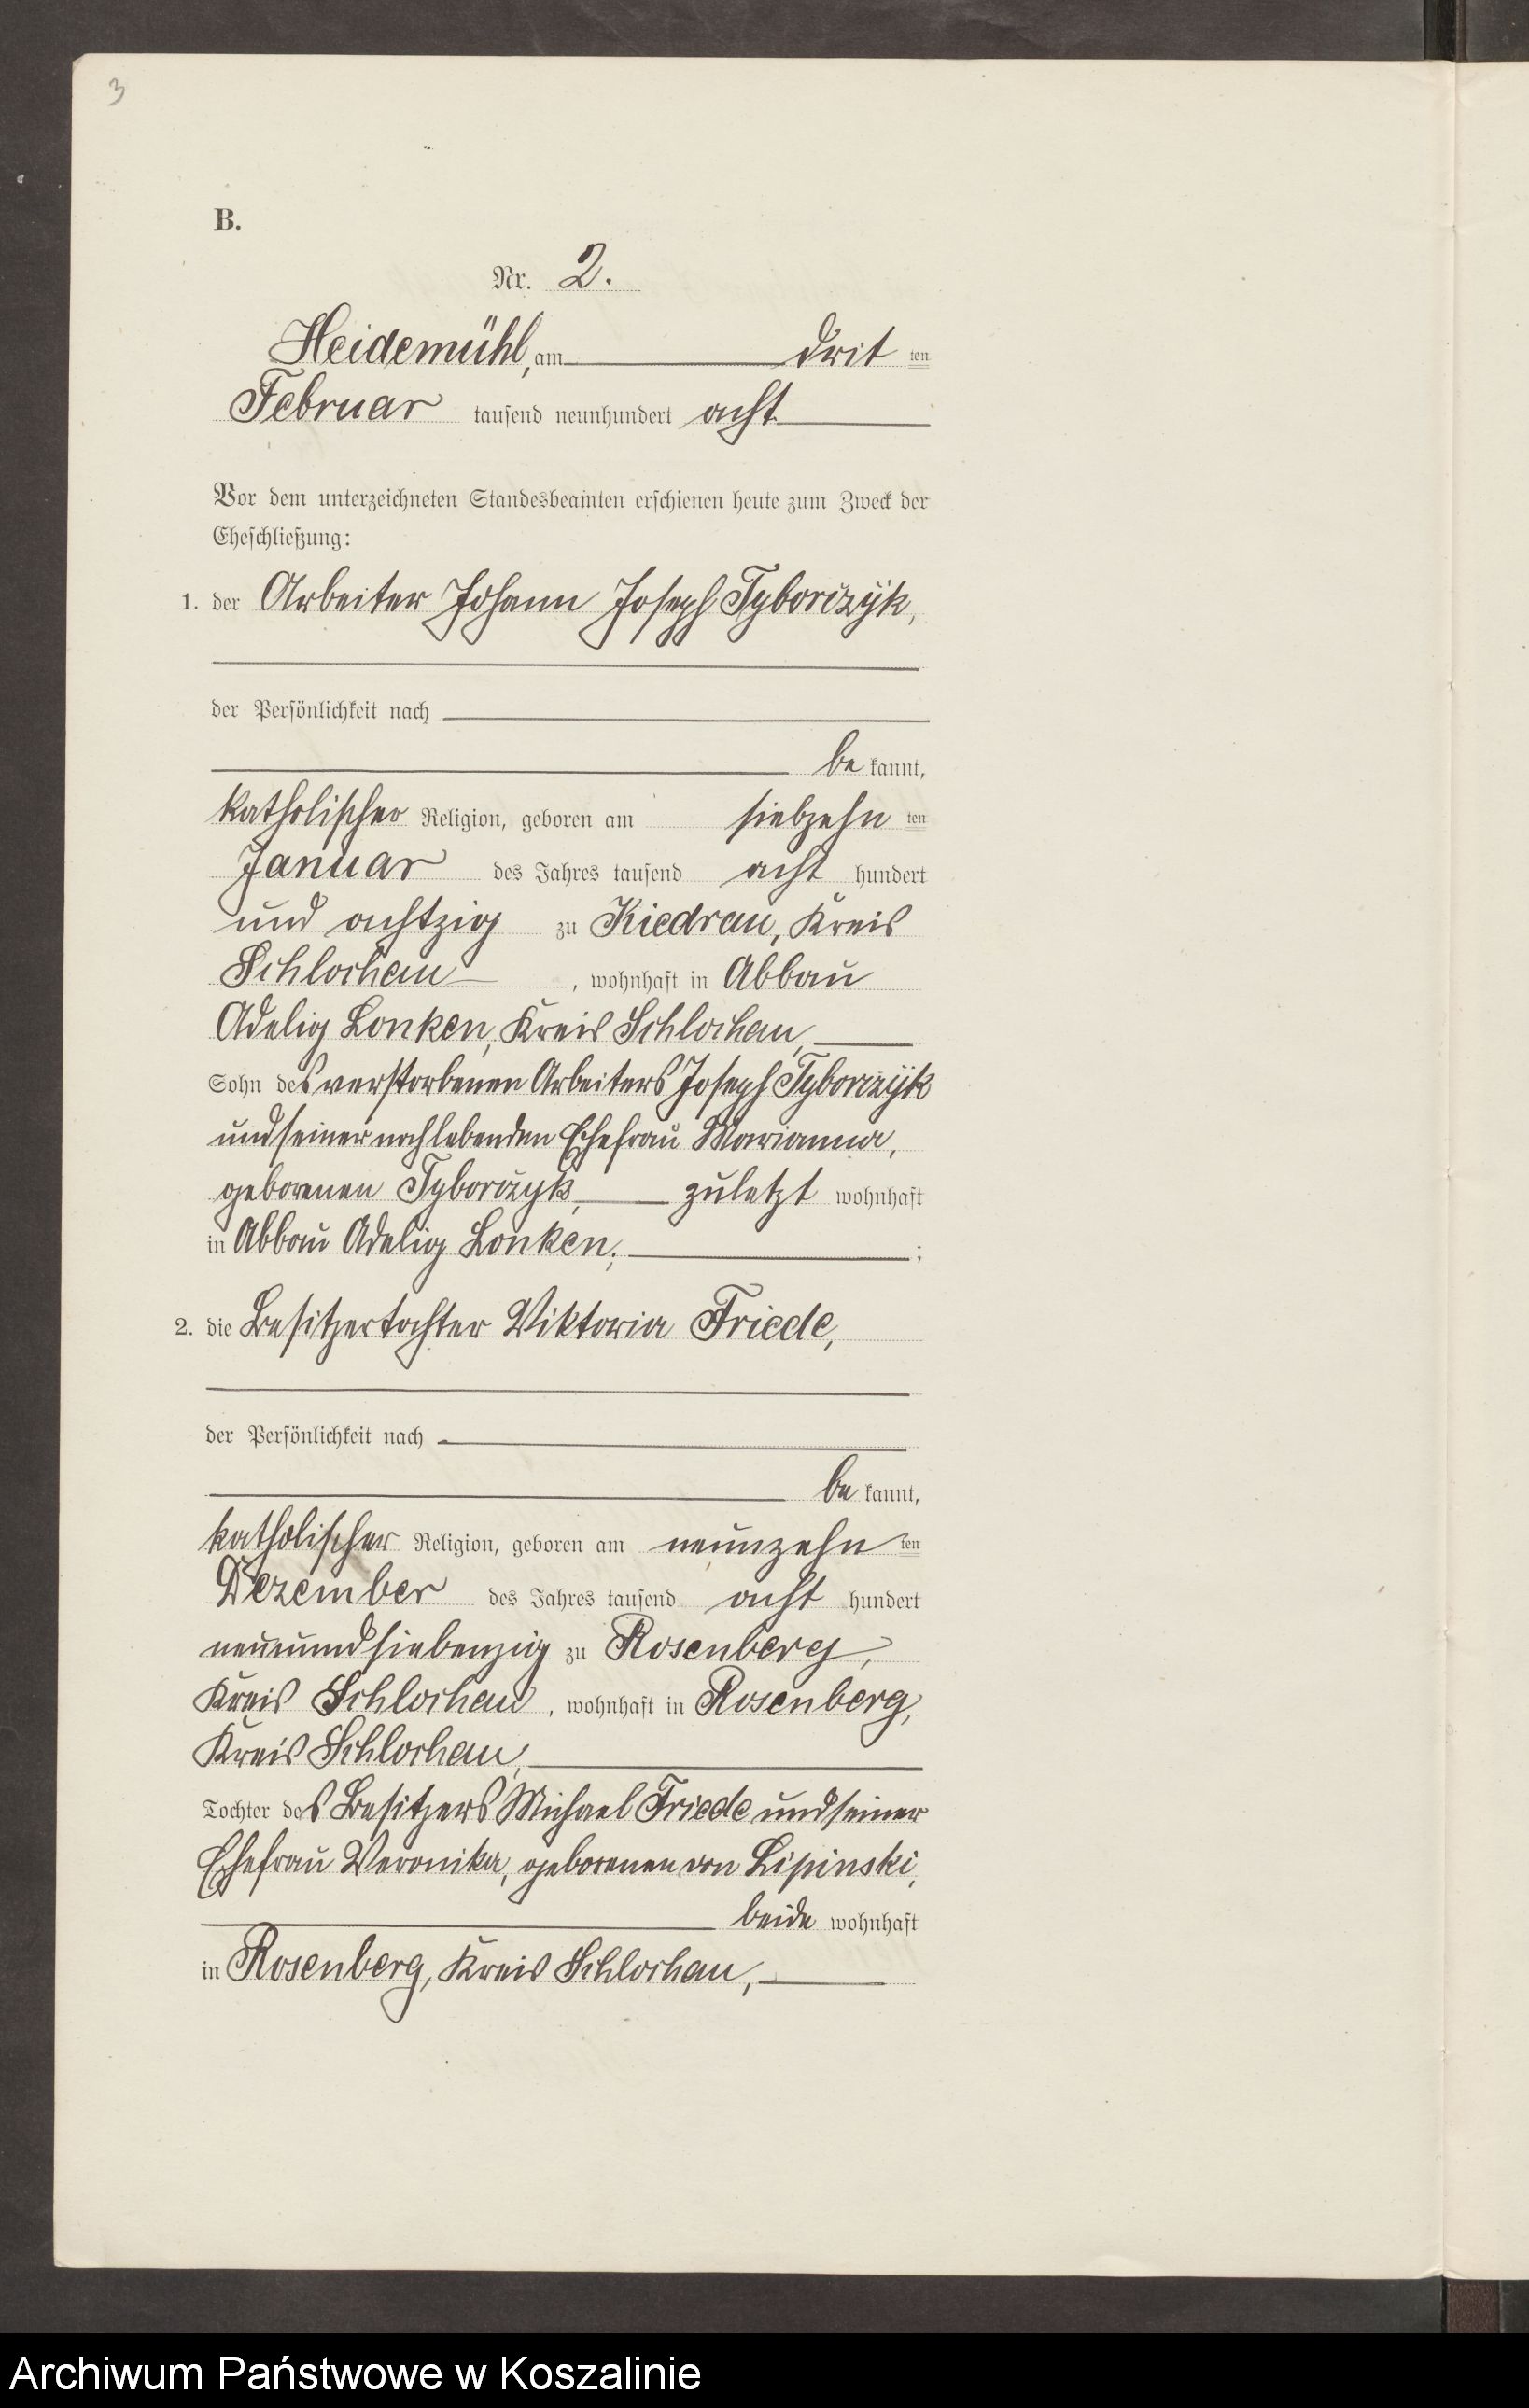 3
B.
Nr. 2.
Heidemühl, am drit ten
Februar tausend neunhundert acht
Vor dem unterzeichneten Standesbeamten erschienen heute zum Zweck der
Eheschließung:
1. der Arbeiter Johann Joseph Tyborczyk,
der Persönlichkeit nach
be kannt,
katholischer Religion, geboren am siebzehn ten
Januar des Jahres tausend acht hundert
und achtzig zu Kiedrau, Kreis
Schlochau, wohnhaft in Abbau
Adelig Lonken, Kreis Schlochau,
Sohn des verstorbenen Arbeiters Joseph Tyborczyk
und seiner noch lebenden Ehefrau Marianna,
geborenen Tyborczyk, zuletzt wohnhaft
in Abbau Adelig Lonken, ;
2. die Besitzertochter Viktoria Friede,
der Persönlichkeit nach
be kannt,
katholischer Religion, geboren am neunzehn ten
Dezember des Jahres tausend acht hundert
neunundsiebenzig zu Rosenberg,
Kreis Schlochau, wohnhaft in Rosenberg,
Kreis Schlochau,
Tochter des Besitzers Michael Friede und seiner
Ehefrau Veronika, geborenen von Lipinski,
beide wohnhaft
in Rosenberg, Kreis Schlochau,
Archiwum Państwowe w Koszalinie